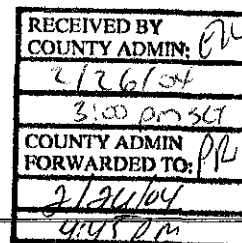 RECEIVED BY
COUNTY ADMIN:
2/26/04
3:00 pm
COUNTY ADMIN
FORWARDED TO:
2/26/04
4:45 pm